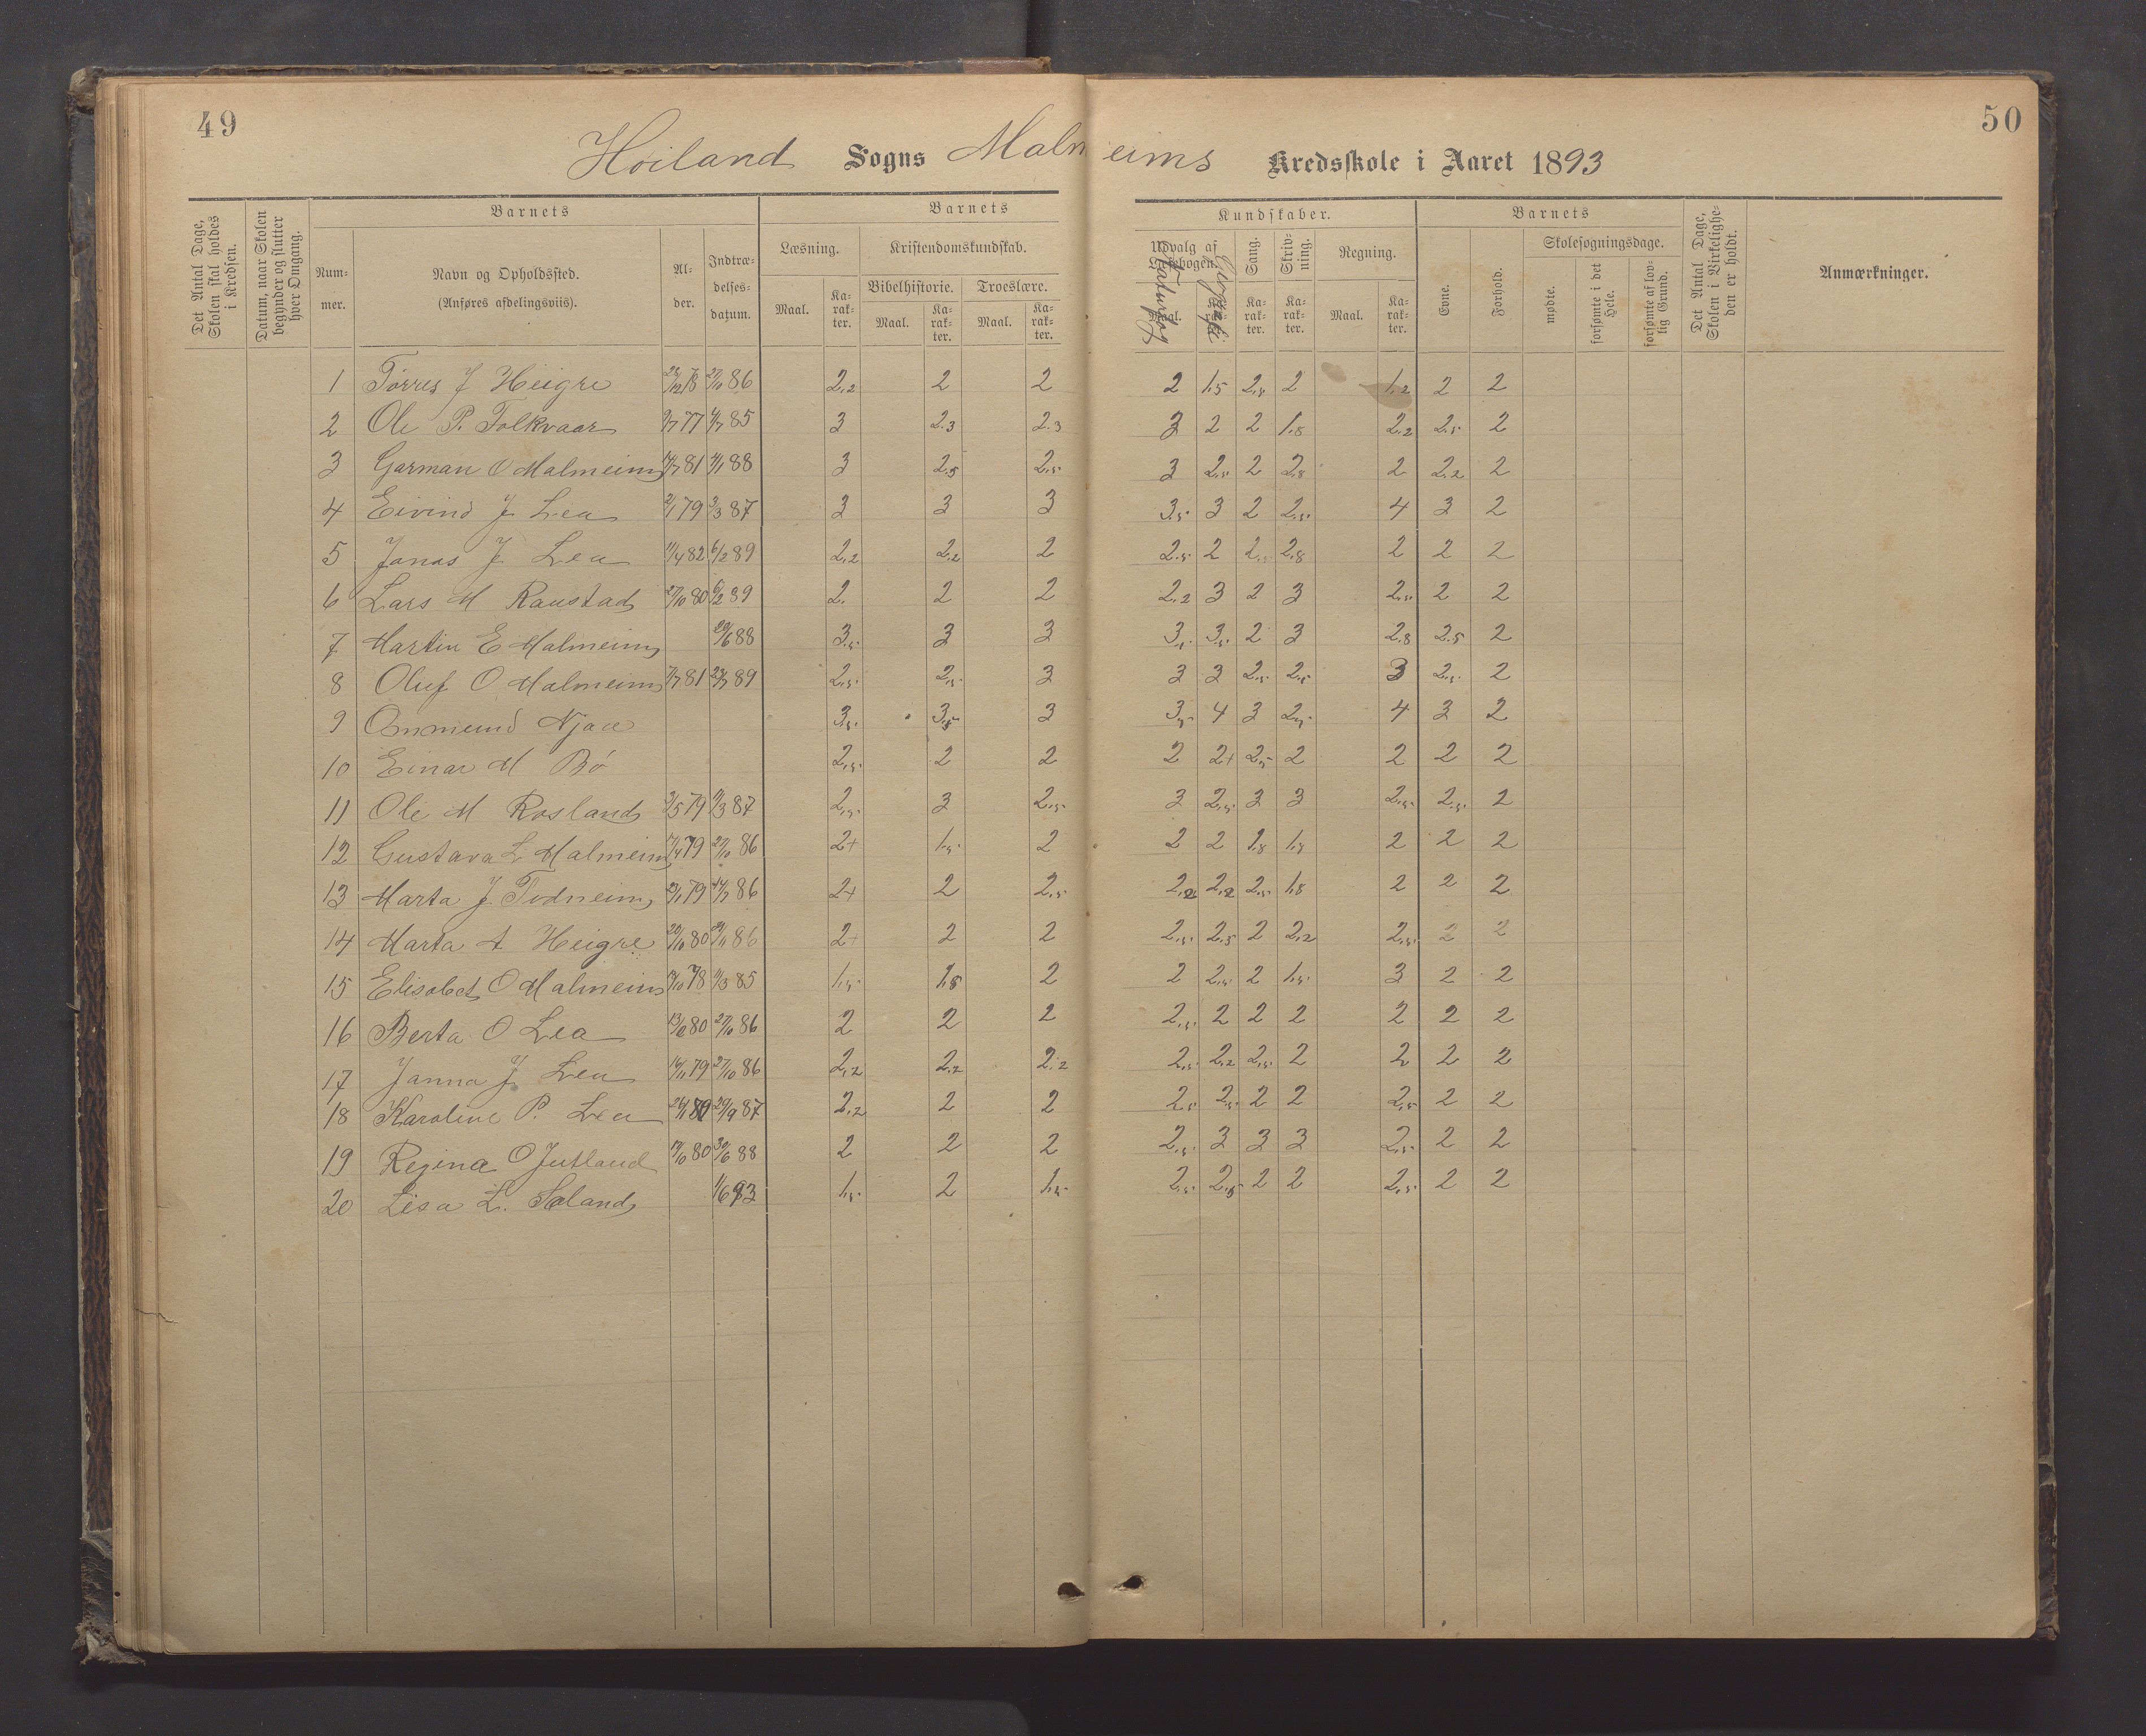 49
50
Høiland Sogns Malmeims Kredsskole i Aaret 1893
Det Antal Dage, Skolen skal holdes i Kredsen.
Datum, naar Skolen begynder og slutter hver Omgang.
Barnets
Barnets
Kundskaber.
Barnets
Det Antal Dage, Skolen i Virkelighe- den er holdt.
Anmærkninger.
Num- mer.
Navn og Opholdssted.
(Anføres afdelingsviis).
Al- der.
Indtræ- delses- datum.
Læsning.
Kristendomskundskab.
Bibelhistorie.
Troeslære.
Maal.
Ka- rak- ter.
Maal.
Ka- rak- ter.
Maal.
Ka- rak- ter.
Udvalg af Læsebogen.
Maal.
Ka- rak- ter.
Sang.
Ka- rak- ter.
Skriv- ning.
Ka- rak- ter.
Regning.
Maal.
Ka- rak- ter.
Evne.
Forhold.
Skolesøgningsdage.
mødte.
forsømte i det Hele.
forsømte af lov- lig Grund.
1 Tørres J Heigre 27/10 86 2,2 2 2 2 1,5 2,8 2 1,2 2 2
2 Ole P. Folkvaar 85 3 2.3 2.3 3 2 2 1,8 2,2 2,5 2
3 Garman O Malmeim 81 88 3 2,5 2,5 3 2,5 2 2,8 2 2,2 2
4 Eivind J Lea 2/1 79 3/3 87 3 3 3 3,5 3 2 2,5 4 3 2
5 Jonas J Lea 11/4 82 6/2 89 2,2 2,2 2 2,5 2 2,8 2 2 2
6 Lars M Raustad 27/10 80 6/2 89 2. 2 2 2,2 3 2 3 2,5 2 2
7 Martin E Malmeim 88 3,5 3 3 3,5 3,5 2 3 2,8 2,5 2
8 Oluf O Malmeim 81 89 2,5 2,5 3 3 3 2,5 2,5 3 2,5 2
9 Ommund Njaa 3,5 3,5 3 3,5 4 3 2,5 4 3 2
10 Einar M Bø 2,5 2 2 2 2+ 2,5 2 2 2 2
11 Ole M Rosland 79 87 2,5 3 2,5 3 2,5 3 3 2,5 2,5 2
12 Gustava L Malmeim 79 27/10 86 2+ 1,5 2 2 2 1,8 1,8 2 2 2
13 Marta J Todneim 79 86 2+ 2 2,5 2,2 2,2 2,5 1,8 2 2 2
14 Marta A Heigre 20/10 80 86 2+ 2 2 2,5 2,5 2 2,2 2,5 2 2
15 Elisabet O Malmeim 78 85 1,5 1,8 2 2 2,5 2 1,5 3 2 2
16 Berta O Lea 80 27/10 86 2 2 2 2,5 2 2 2 2 2 2
17 Janna J Lea 16/11 79 27/10 86 2,2 2,2 2,2 2,5 2,2 2,5 2 2 2 2
18 Karoline P. Lea 29/9 87 2,2 2 2 2,5 2,5 2 2 2,5 2 2
19 Regina O Jutland 80 30/6 88 2 2 2 2,5 3 3 3 2,5 2 2
20 Lisa L. Soland 1/6 93 1,5 2 1,5 2,5 2,5 2 2 2,5 2 2